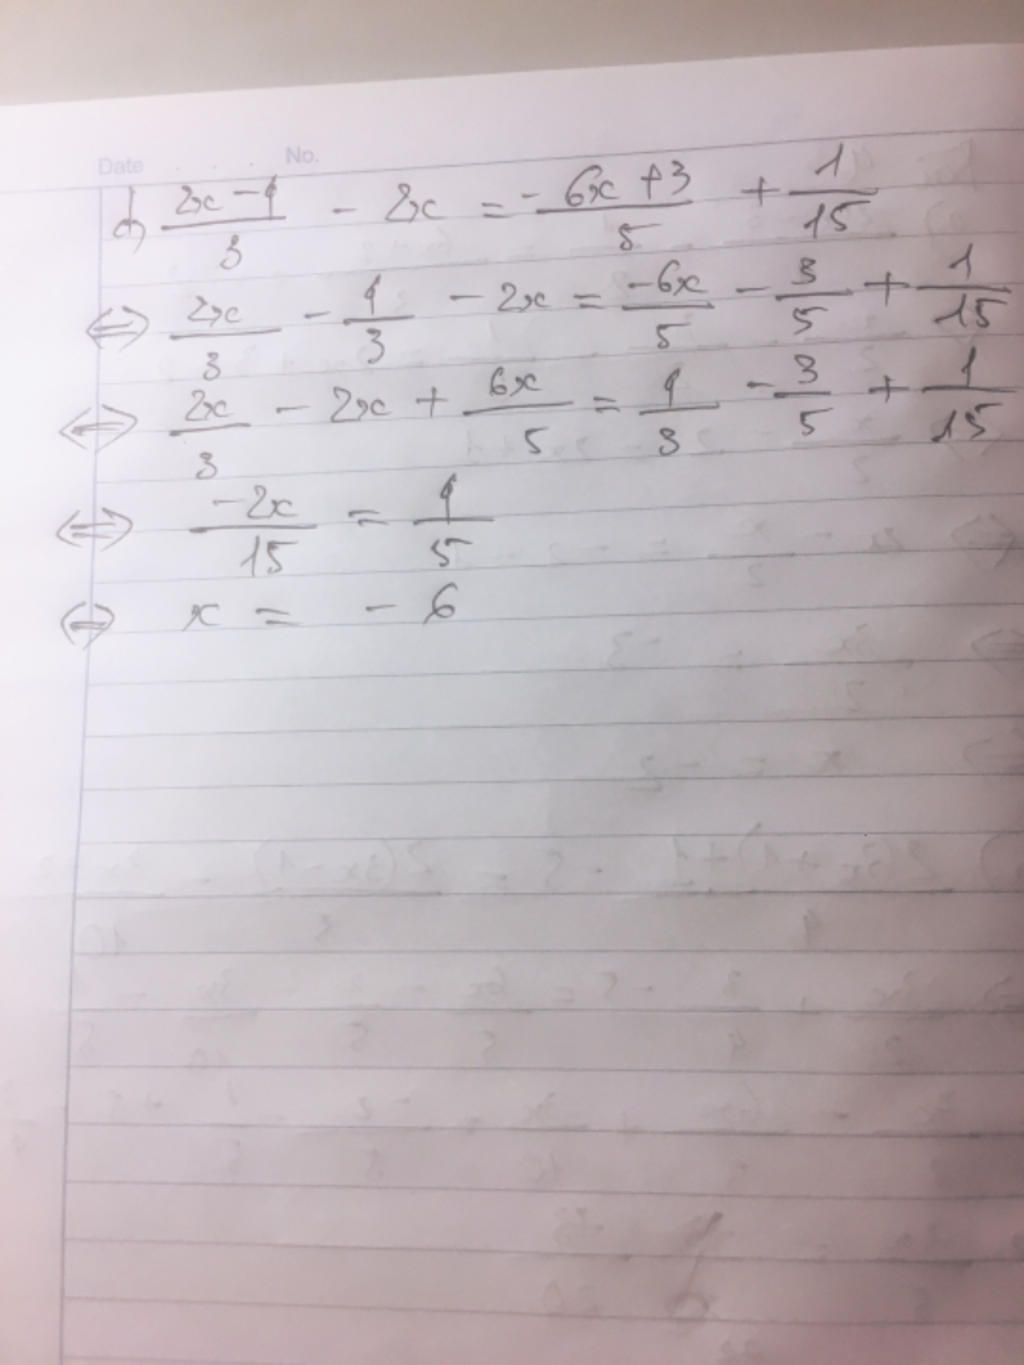 Date No.
d) \frac{2x-1}{3} - 2x = -\frac{6x+3}{5} + \frac{1}{15}
⇔ \frac{2x}{3} - \frac{1}{3} - 2x = \frac{-6x}{5} - \frac{3}{5} + \frac{1}{15}
⇔ \frac{2x}{3} - 2x + \frac{6x}{5} = \frac{1}{3} - \frac{3}{5} + \frac{1}{15}
⇔ \frac{-2x}{15} = \frac{1}{5}
⇔ x = -6